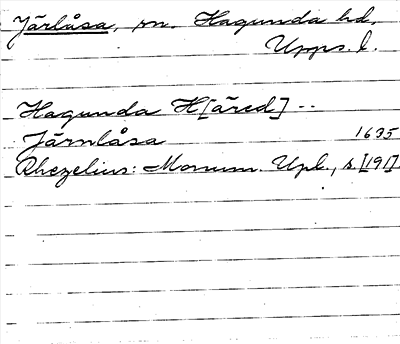 Järlåsa, sn. Hagunda hd,
Upps. l.
Hagunda H[äred] --
Järnlåsa 1635
Rhezelius: Monum. Upl., s.[191]